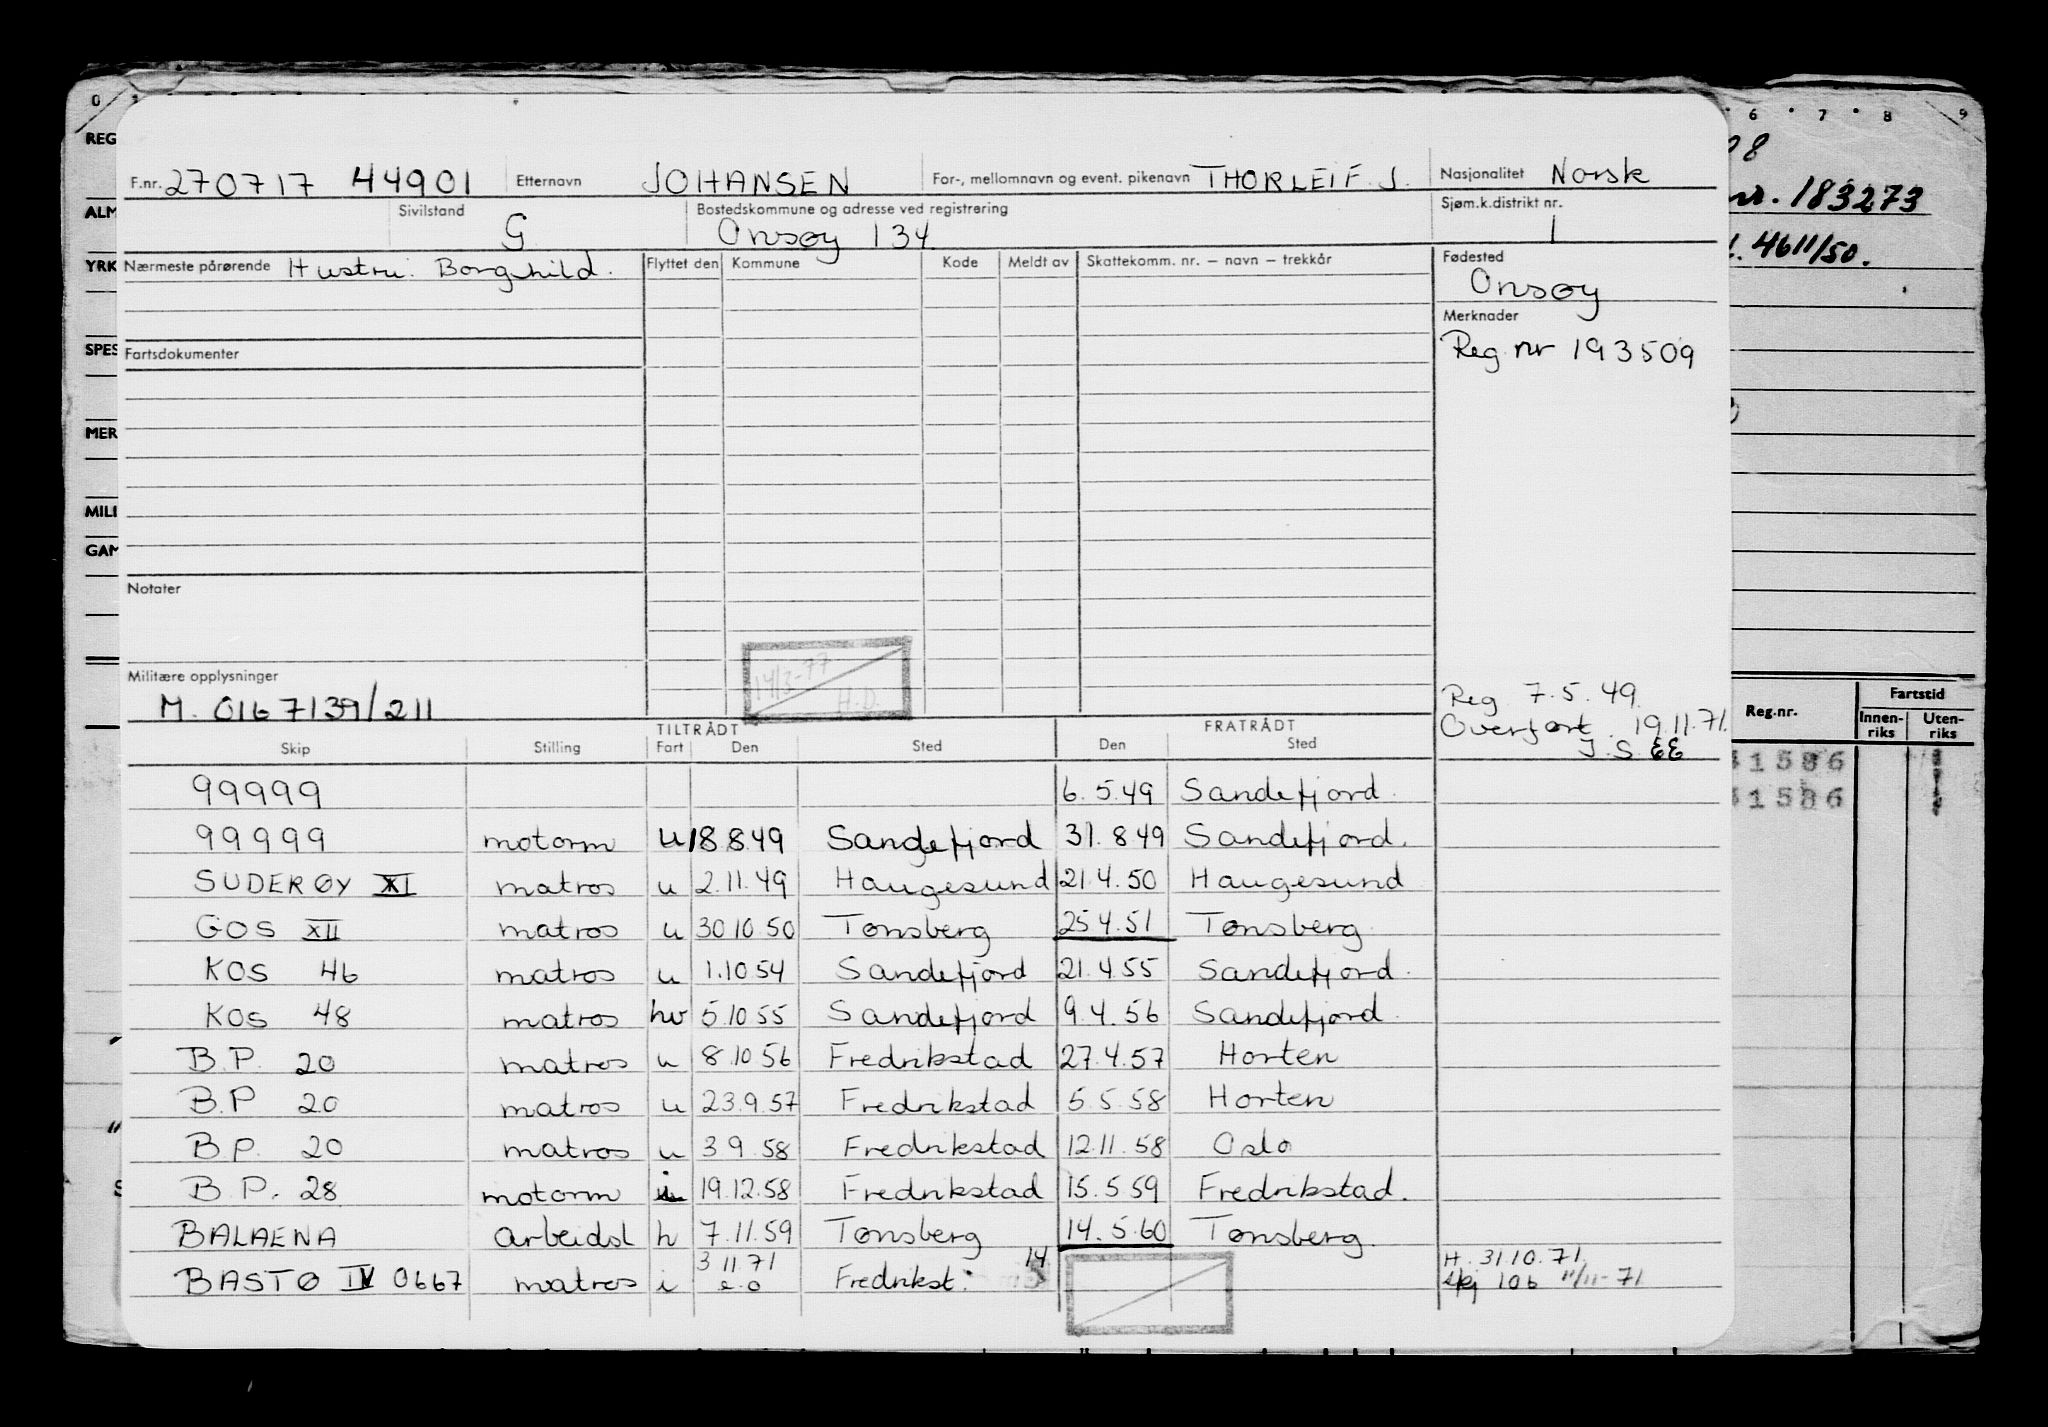 0 6 7 8 9
REG
F.nr. 270717 44901 Etternavn JOHANSEN For-, mellomnavn og event. pikenavn THORLEIF. J. Nasjonalitet Norsk
nr. 183273
ALM Sivilstand G Bostedskommune og adresse ved registrering Onsøy 134 Sjøm.k.distrikt nr. 1
4611/50.
YRK Nærmeste pårørende Hustru: Borghild. Flyttet den Kommune Kode Meldt av Skattekomm. nr. – navn – trekkår Fødested Onsøy
Merknader
SPES Fartsdokumenter Reg nr 193509
MER
MILI
GAM
Notater
14/3-77
H.D.
Militære opplysninger
M. 0167139/211
Reg 7.5.49.
Overført 19.11.71.
J.S. EE
Reg.nr. Fartstid
Innen-riks Uten-riks
TILTRÅDT FRATRÅDT
Skip Stilling Fart Den Sted Den Sted
99999 6.5.49 Sandefjord. 1586
99999 motorm u 18.8.49 Sandefjord 31.8.49 Sandefjord. 1586
SUDERØY XI matros u 2.11.49 Haugesund 21.4.50 Haugesund
GOS XII matros u 30.10.50 Tønsberg 25.4.51 Tønsberg.
KOS 46 matros u 1.10.54 Sandefjord 21.4.55 Sandefjord.
KOS 48 matros hv 5.10.55 Sandefjord 9.4.56 Sandefjord.
B.P. 20 matros u 8.10.56 Fredrikstad 27.4.57 Horten
B.P 20 matros u 23.9.57 Fredrikstad 5.5.58 Horten
B.P. 20 matros u 3.9.58 Fredrikstad 12.11.58 Oslo
B.P. 28 motorm i 19.12.58 Fredrikstad 15.5.59 Fredrikstad.
BALAENA arbeidsl h 7.11.59 Tønsberg 14.5.60 Tønsberg.
BASTØ IV 0667 matros i 3.11.71 e.o Fredrikst. 14 H. 31.10.71.
skj 106 11/11-71